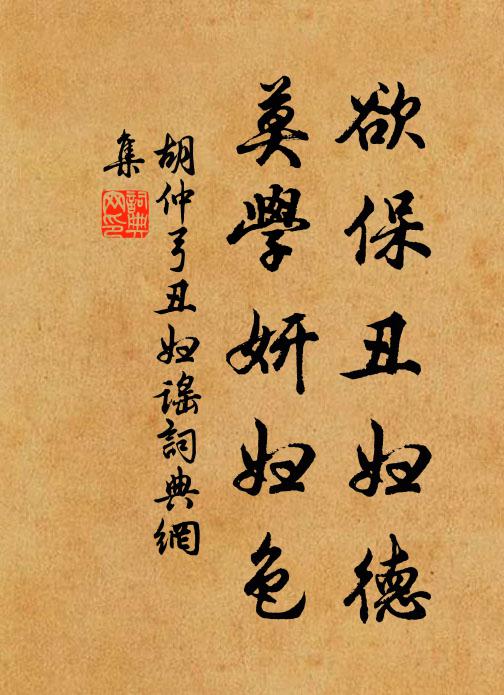 欲保丑妇德
莫學妍妇色
胡仲弓丑妇謠詞典網
集
詞典
网印